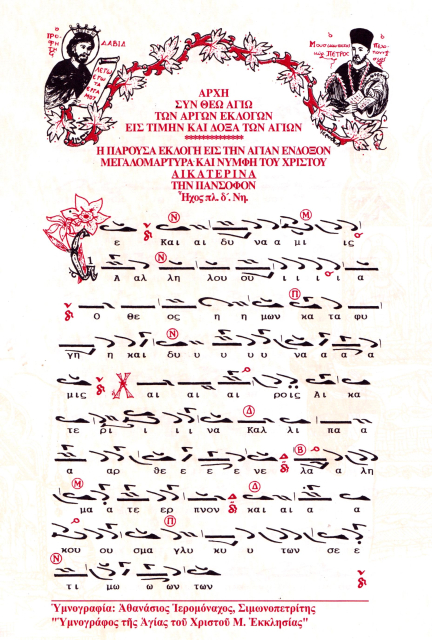 Ο ΠΡΟΦΗΤΗΣ ΔΑΒΙΔ
ΛΕΓΩ ΕΓΩ ΤΑ ΕΡΓΑ ΜΟΥ
ΠΕΤΡΟΣ
ΑΡΧΗ
ΣΥΝ ΘΕΩ ΑΓΙΩ
ΤΩΝ ΑΡΓΩΝ ΕΚΛΟΓΩΝ
ΕΙΣ ΤΙΜΗΝ ΚΑΙ ΔΟΞΑ ΤΩΝ ΑΓΙΩΝ
Η ΠΑΡΟΥΣΑ ΕΚΛΟΓΗ ΕΙΣ ΤΗΝ ΑΓΙΑΝ ΕΝΔΟΞΟΝ
ΜΕΓΑΛΟΜΑΡΤΥΡΑ ΚΑΙ ΝΥΜΦΗ ΤΟΥ ΧΡΙΣΤΟΥ
ΑΙΚΑΤΕΡΙΝΑ
ΤΗΝ ΠΑΝΣΟΦΟΝ
Ἦχος πλ. δ΄. Νη.
Ν Μ
ε Και αι δυ να α μι ις
Ν
Α αλ λη λου ου ι ι ι α
Π
Ο θε ος η η μων κα τα φυ
Ν
γη η και δυ υ υ υ να α α α
μις Χ αι αι αι ροις Αι κα
Δ
τε ρι ι ι να Καλ λι πα α
Β
α αρ θε ε ε ε νε λα α λη
Μ Δ
μα α τε ερ πνον και αι α α
Π
κου ου σμα γλυ κυ υ των σε ε
Ν
τι μω ω ων των
Ὑμνογραφία: Ἀθανάσιος Ἱερομόναχος, Σιμωνοπετρίτης
"Ὑμνογράφος τῆς Ἁγίας τοῦ Χριστοῦ Μ. Ἐκκλησίας"